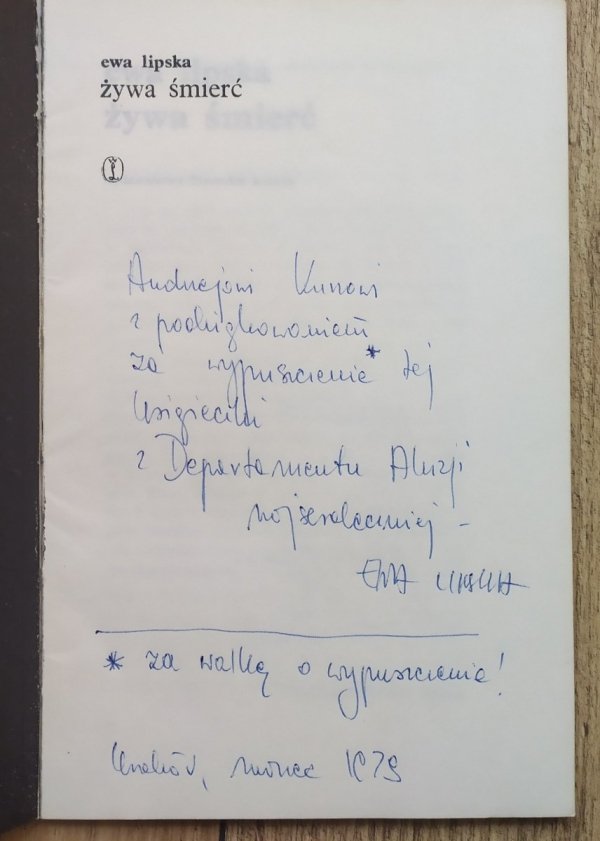 ewa lipska
żywa śmierć
Andrzejowi Kurzowi
z podziękowaniem
za wypuszczenie* tej
książeczki
z Departamentu Aluzji
najserdeczniej –
EWA LIPSKA
* za walkę o wypuszczenie!
Kraków, marzec 1979